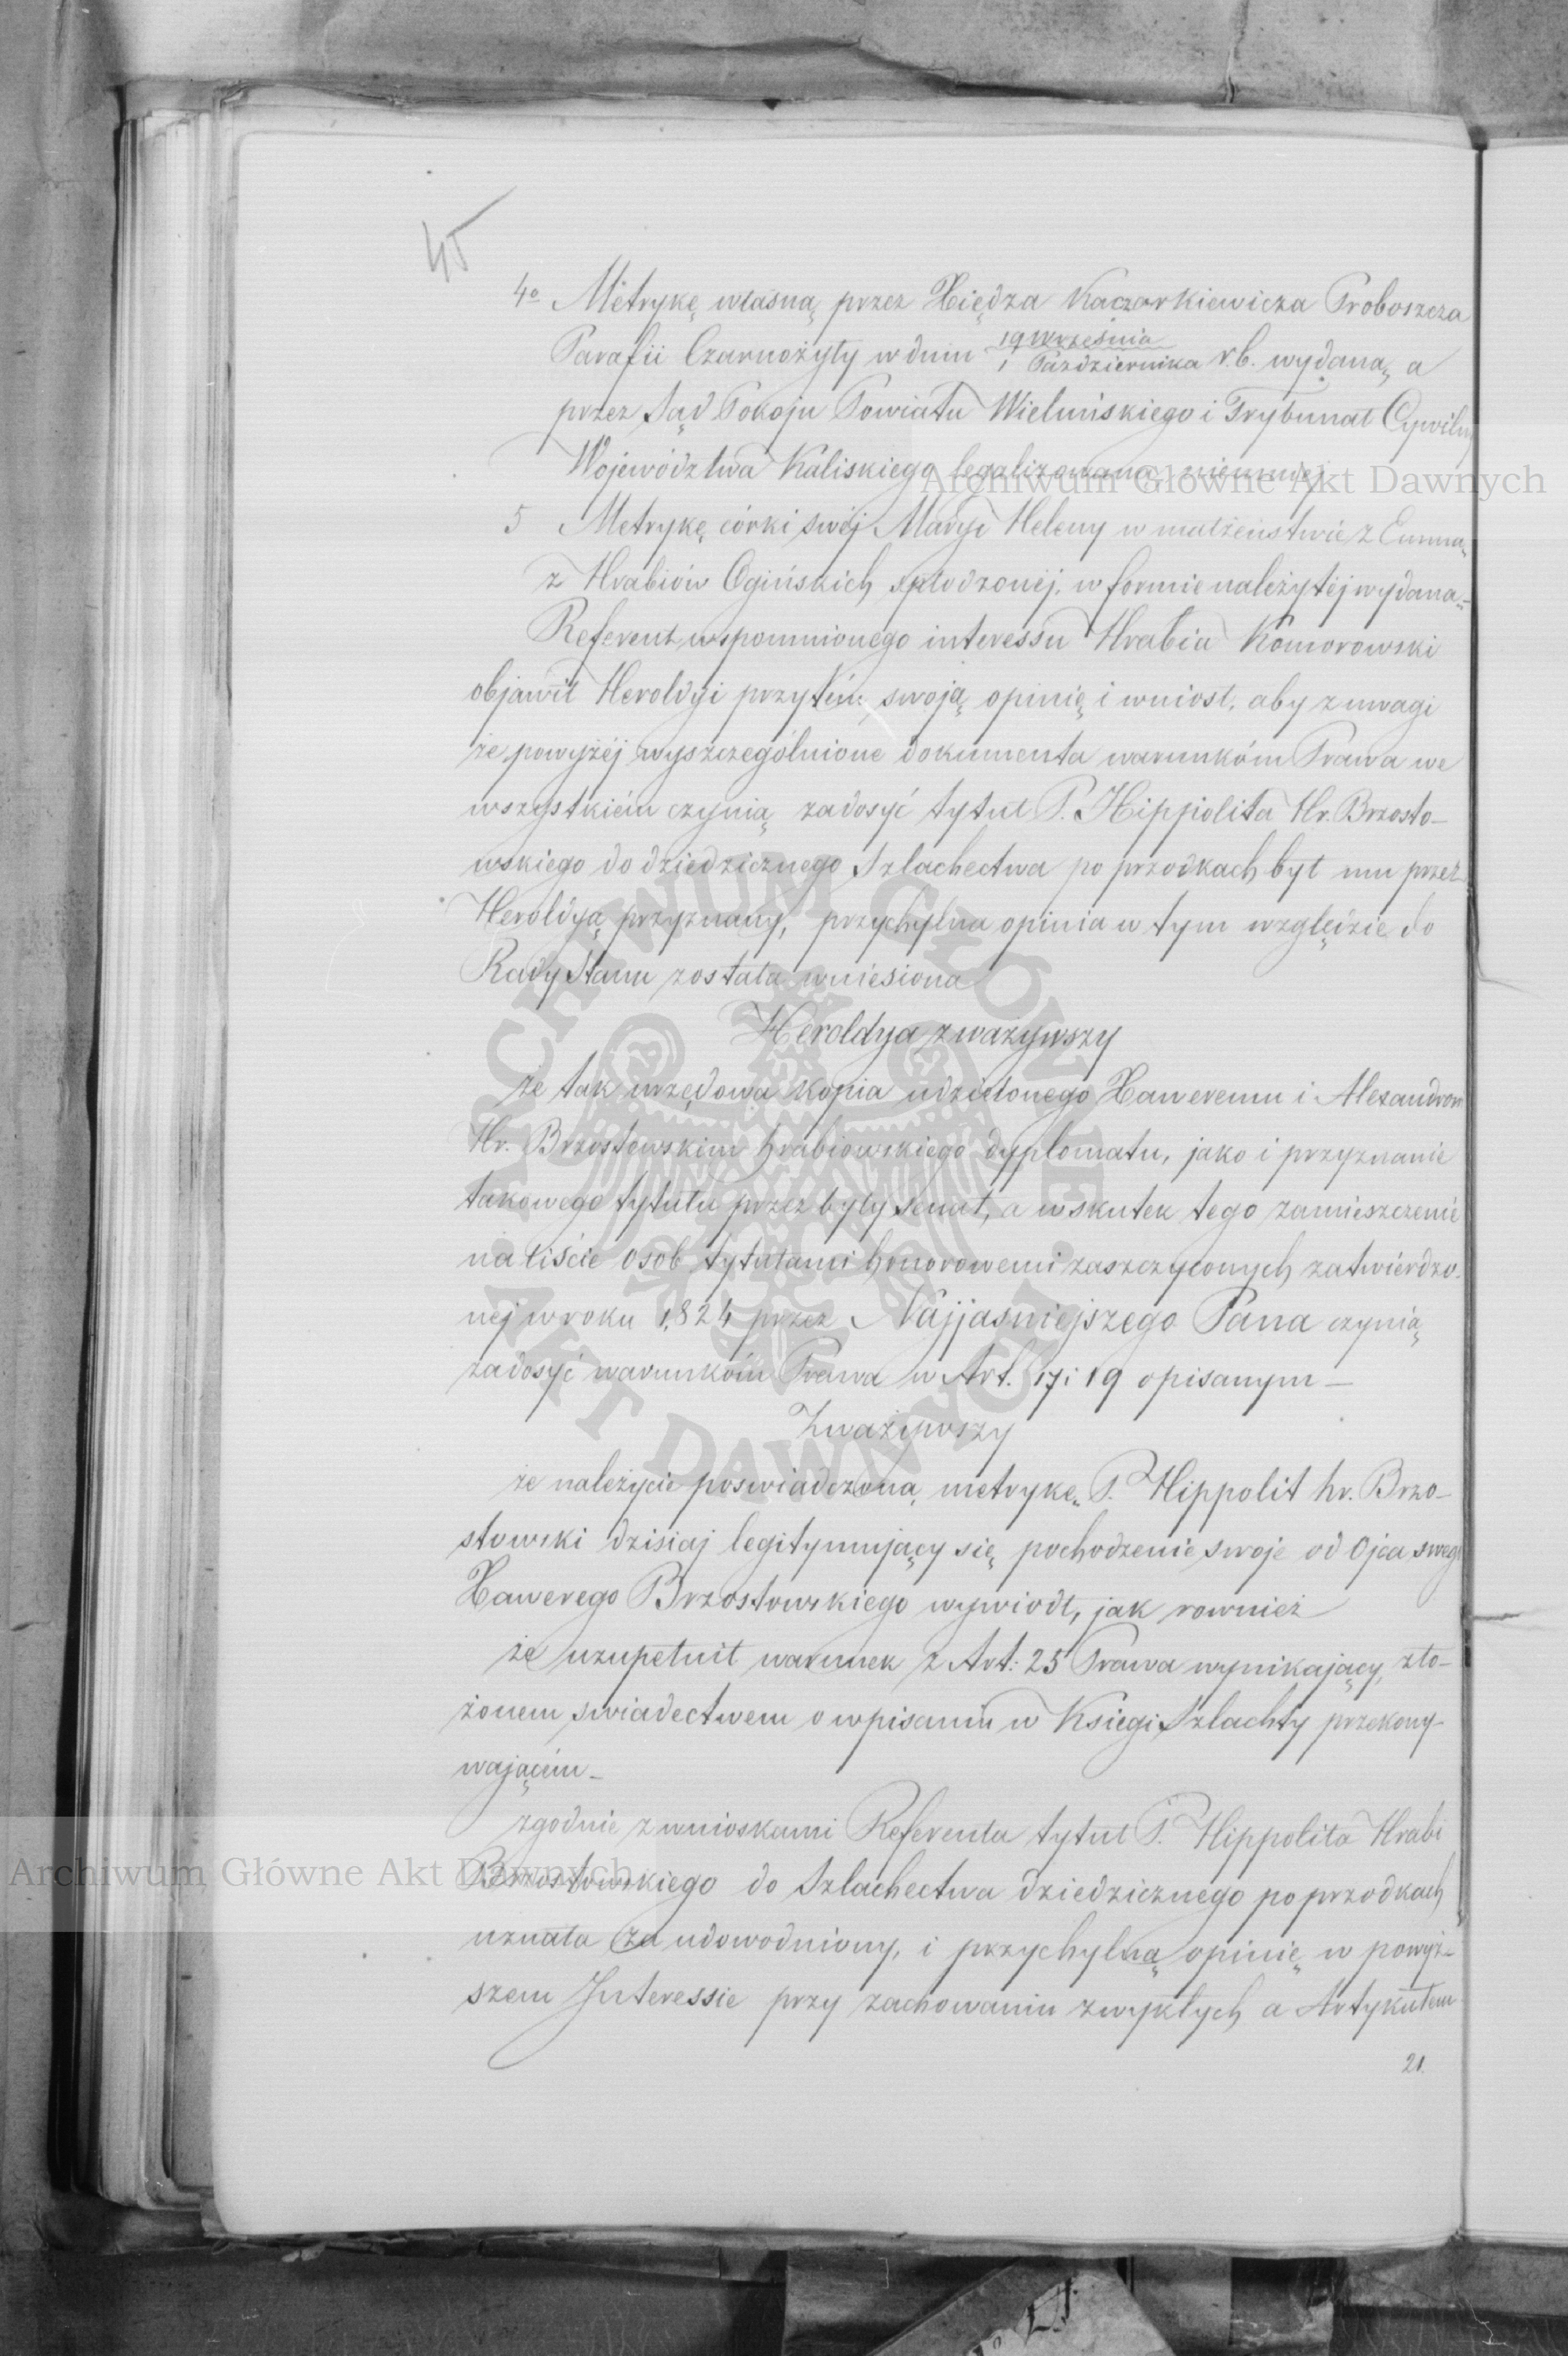 45
4o Metrykę własną przez Xiędza Kaczorkiewicza Proboszcza
Parafii Czarnożyły w dniu 19 Września / 1 Października r.b. wydaną, a
przez Sąd Pokoju Powiatu Wieluńskiego i Trybunał Cywilny
Województwa Kaliskiego legalizowaną niemniej
5 Metrykę córki swéj Maryi Heleny w małżeństwie z Emmą
z Hrabiów Ogińskich spłodzonéj, w formie należytéj wydaną -
Referent wspomnionego interessu Hrabia Komorowski
objawił Heroldyi przytém swoją opinię i wniosł, aby z uwagi
że powyżéj wyszczególnione dokumenta warunkóm Prawa we
wszystkiém czynią zadosyć tytuł P. Hippolita Hr. Brzosto-
wskiego do dziedzicznego Szlachectwa po przodkach był mu przez
Heroldyą przyznany, przychylna opinia w tym względzie do
Rady Stanu została wniesiona
Heroldya zważywszy
że tak urzędowa kopia udzielonego Xaweremu i Alexandrow
Hr. Brzostowskim hrabiowskiego dyplomatu, jako i przyznanie
takowego tytułu przez były Senat, a wskutek tego zamieszczenie
na liście osob tytułami honorowemi zaszczyconych zatwierdzo-
néj w roku 1824 przez Najjaśniejszego Pana czynią
zadosyć warunkóm Prawa w Art. 17 i 19 opisanym -
Zważywszy
że należycie poswiadczoną metrykę P. Hippolit hr. Brzo-
stowski dzisiaj legitymujący się pochodzenie swoje od Ojca swego
Xawerego Brzostowskiego wywiodł, jak rownież
że uzupełnił warunek z Art: 25 Prawa wynikający, zło-
żonem swiadectwem o wpisaniu w Księgi Szlachty przekony-
wającém -
zgodnie z wnioskami Referenta tytuł P. Hippolita Hrabi
Brzostowskiego do Szlachectwa dziedzicznego po przodkach
uznała za udowodniony, i przychylną opinię w powyż-
szem Interessie przy zachowaniu zwykłych a Artykułem
21.
Archiwum Główne Akt Dawnych
Archiwum Główne Akt Dawnych
ARCHIWUM GŁÓWNE AKT DAWNYCH